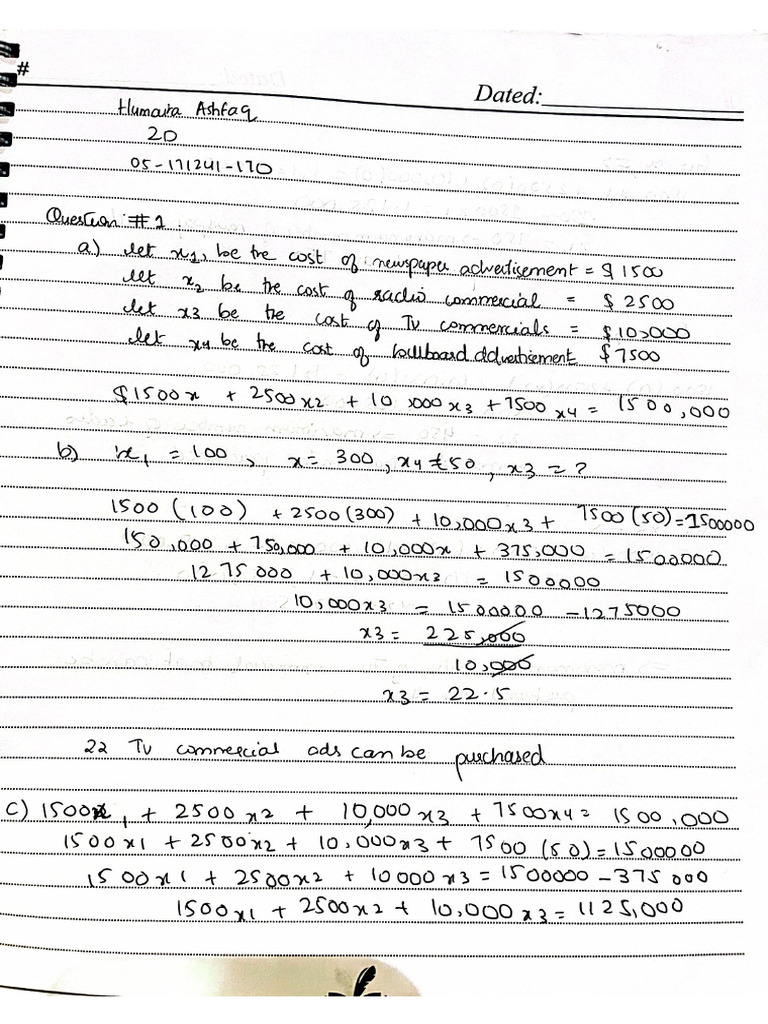 #
Dated:
Humaira Ashfaq
20
05-171241-170
Question #1
a) let x1, be the cost of newspaper advertisement = $1500
let x2 be the cost of radio commercial = $2500
let x3 be the cost of Tv commercials = $10,000
let x4 be the cost of billboard advertisement $7500
$1500x + 2500x2 + 10,000x3 + 7500x4 = 1500,000
b) x1 = 100, x = 300, x4 = 50, x3 = ?
1500(100) + 2500(300) + 10,000x3 + 7500(50) = 1500000
150,000 + 750,000 + 10,000x + 375,000 = 1500000
1275000 + 10,000x3 = 1500000
10,000x3 = 1500000 - 1275000
x3 = 225,000
10,000
x3 = 22.5
22 Tv commercial ads can be purchased
c) 1500x1 + 2500x2 + 10,000x3 + 7500x4 = 1500,000
1500x1 + 2500x2 + 10,000x3 + 7500(50) = 1500000
1500x1 + 2500x2 + 10000x3 = 1500000 - 375000
1500x1 + 2500x2 + 10,000x3 = 1125,000